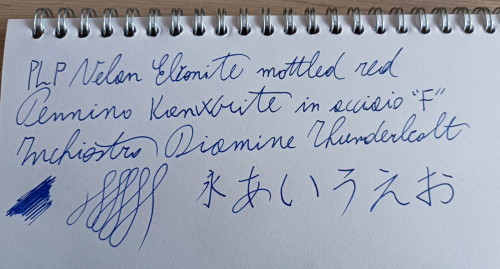 PLP Nelan Elionite mottled red
Pennino Kanwrite in acciaio "F"
Inchiostro Diamine Thunderbolt
永 あいうえお